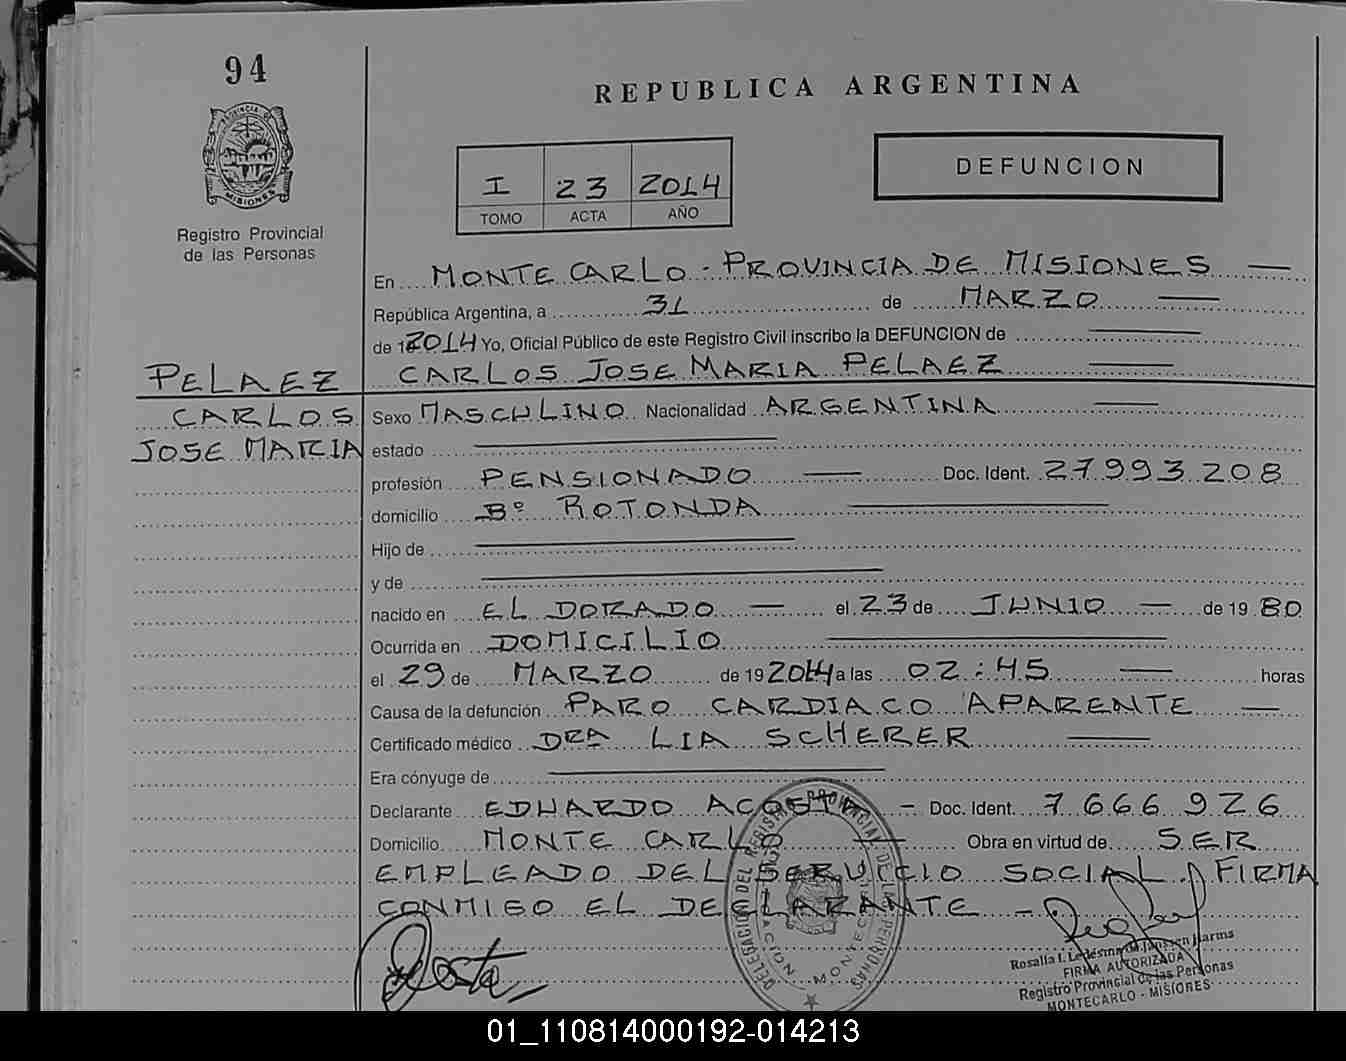 94
REPUBLICA ARGENTINA
PROVINCIA DE
MISIONES
Registro Provincial
de las Personas
I 23 2014
TOMO ACTA AÑO
DEFUNCION
En MONTE CARLO - PROVINCIA DE MISIONES
República Argentina, a 31 de MARZO
de 1 2014 Yo, Oficial Público de este Registro Civil inscribo la DEFUNCION de
CARLOS JOSE MARIA PELAEZ
PELAEZ
CARLOS
JOSE MARIA
Sexo MASCULINO Nacionalidad ARGENTINA
estado
profesión PENSIONADO Doc. Ident. 27.993.208
domicilio Bº ROTONDA
Hijo de
y de
nacido en EL DORADO el 23 de JUNIO de 19 80
Ocurrida en DOMICILIO
el 29 de MARZO de 19 2014 a las 02:45 horas
Causa de la defunción PARO CARDIACO APARENTE
Certificado médico DRA LIA SCHERER
Era cónyuge de
Declarante EDUARDO ACOSTA - Doc. Ident. 7.666.926
Domicilio MONTE CARLO Obra en virtud de SER
EMPLEADO DEL SERVICIO SOCIAL. FIRMA
CONMIGO EL DECLARANTE -
DELEGACION DEL REGISTRO PROVINCIAL DE LAS PERSONAS
MONTECARLO
Acosta
Rosalia I. Ledesma de Janssen Harms
FIRMA AUTORIZADA
Registro Provincial de las Personas
MONTECARLO - MISIONES
01_110814000192-014213